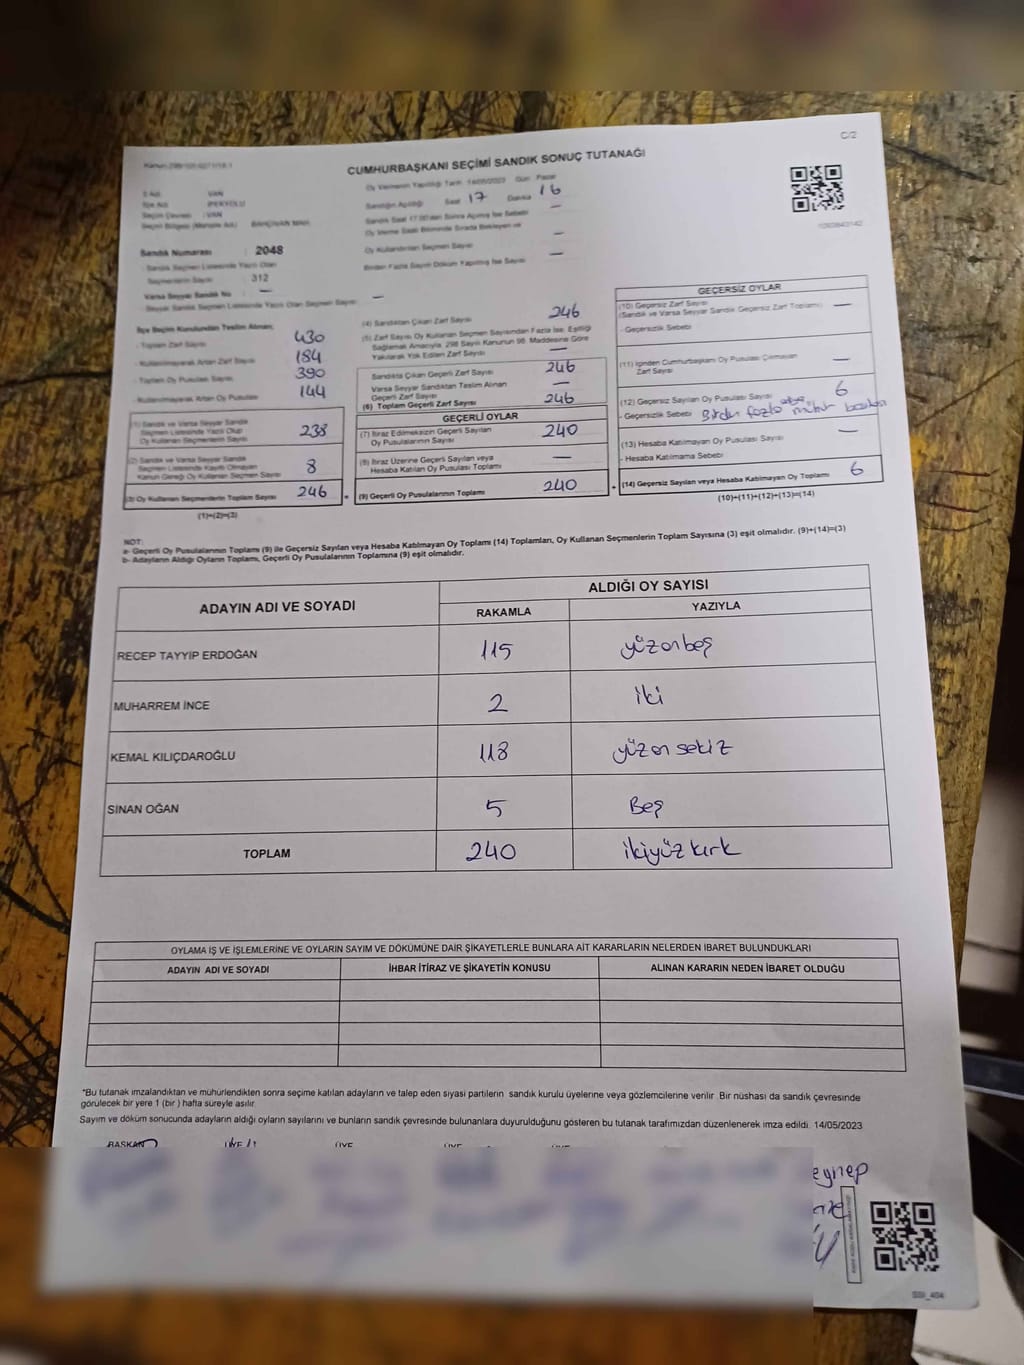 C/2
CUMHURBAŞKANI SEÇİMİ SANDIK SONUÇ TUTANAĞI
Oy Vermenin Yapıldığı Tarih 14/05/2023 Gün Pazar
İl Adı VAN
İlçe Adı İPEKYOLU
Seçim Çevresi : VAN
Sandığın Açıldığı Saat 17 Dakika 16
Sandık Saat 17.00'den Sonra Açılmış İse Sebebi —
Oy Verme Saati Bitiminde Sırada Bekleyen ve
Oy Kullandırılan Seçmen Sayısı —
Birden Fazla Sayım Döküm Yapılmış İse Sebebi —
Sandık Numarası : 2048
Sandık Seçmen Listesinde Yazılı Olan
Seçmenlerin Sayısı : 312
Varsa Seyyar Sandık No —
Seyyar Sandık Seçmen Listesinde Yazılı Olan Seçmen Sayısı —
İlçe Seçim Kurulundan Teslim Alınan;
- Toplam Zarf Sayısı 430
- Kullanılmayarak Artan Zarf Sayısı 184
- Toplam Oy Pusulası Sayısı 390
- Kullanılmayarak Artan Oy Pusulası 144
(1) Sandık ve Varsa Seyyar Sandık
Seçmen Listesinde Yazılı Olup
Oy Kullanan Seçmenlerin Sayısı 238
(2) Sandık ve Varsa Seyyar Sandık
Seçmen Listesinde Kayıtlı Olmayan
Kanun Gereği Oy Kullanan Seçmen Sayısı 8
(3) Oy Kullanan Seçmenlerin Toplam Sayısı 246
(1)+(2)=(3)
(4) Sandıktan Çıkan Zarf Sayısı 246
(5) Zarf Sayısı Oy Kullanan Seçmen Sayısından Fazla İse, Eşitliği
Sağlamak Amacıyla, 298 Sayılı Kanunun 98. Maddesine Göre
Yakılarak Yok Edilen Zarf Sayısı —
Sandıkta Çıkan Geçerli Zarf Sayısı 246
Varsa Seyyar Sandıktan Teslim Alınan
Geçerli Zarf Sayısı —
(6) Toplam Geçerli Zarf Sayısı 246
GEÇERLİ OYLAR
(7) İtiraz Edilmeksizin Geçerli Sayılan
Oy Pusulalarının Sayısı 240
(8) İtiraz Üzerine Geçerli Sayılan veya
Hesaba Katılan Oy Pusulası Toplamı —
(9) Geçerli Oy Pusulalarının Toplamı 240
GEÇERSİZ OYLAR
(10) Geçersiz Zarf Sayısı
(Sandık ve Varsa Seyyar Sandık Geçersiz Zarf Toplamı) —
- Geçersizlik Sebebi
(11) İçinden Cumhurbaşkanı Oy Pusulası Çıkmayan
Zarf Sayısı —
(12) Geçersiz Sayılan Oy Pusulası Sayısı 6
- Geçersizlik Sebebi Birden fazla mühür
(13) Hesaba Katılmayan Oy Pusulası Sayısı —
- Hesaba Katılmama Sebebi
(14) Geçersiz Sayılan veya Hesaba Katılmayan Oy Toplamı 6
(10)+(11)+(12)+(13)=(14)
NOT:
a- Geçerli Oy Pusulalarının Toplamı (9) ile Geçersiz Sayılan veya Hesaba Katılmayan Oy Toplamı (14) Toplamları, Oy Kullanan Seçmenlerin Toplam Sayısına (3) eşit olmalıdır. (9)+(14)=(3)
b- Adayların Aldığı Oyların Toplamı, Geçerli Oy Pusulalarının Toplamına (9) eşit olmalıdır.
ADAYIN ADI VE SOYADI ALDIĞI OY SAYISI
RAKAMLA YAZIYLA
RECEP TAYYİP ERDOĞAN 115 yüzonbeş
MUHARREM İNCE 2 iki
KEMAL KILIÇDAROĞLU 118 yüzon sekiz
SİNAN OĞAN 5 Beş
TOPLAM 240 ikiyüz kırk
OYLAMA İŞ VE İŞLEMLERİNE VE OYLARIN SAYIM VE DÖKÜMÜNE DAİR ŞİKAYETLERLE BUNLARA AİT KARARLARIN NELERDEN İBARET BULUNDUKLARI
ADAYIN ADI VE SOYADI İHBAR İTİRAZ VE ŞİKAYETİN KONUSU ALINAN KARARIN NEDEN İBARET OLDUĞU
*Bu tutanak imzalandıktan ve mühürlendikten sonra seçime katılan adayların ve talep eden siyasi partilerin sandık kurulu üyelerine veya gözlemcilerine verilir. Bir nüshası da sandık çevresinde
görülecek bir yere 1 (bir ) hafta süreyle asılır.
Sayım ve döküm sonucunda adayların aldığı oyların sayılarını ve bunların sandık çevresinde bulunanlara duyurulduğunu gösteren bu tutanak tarafımızdan düzenlenerek imza edildi. 14/05/2023
BAŞKAN ÜYE ÜYE ÜYE
eynep